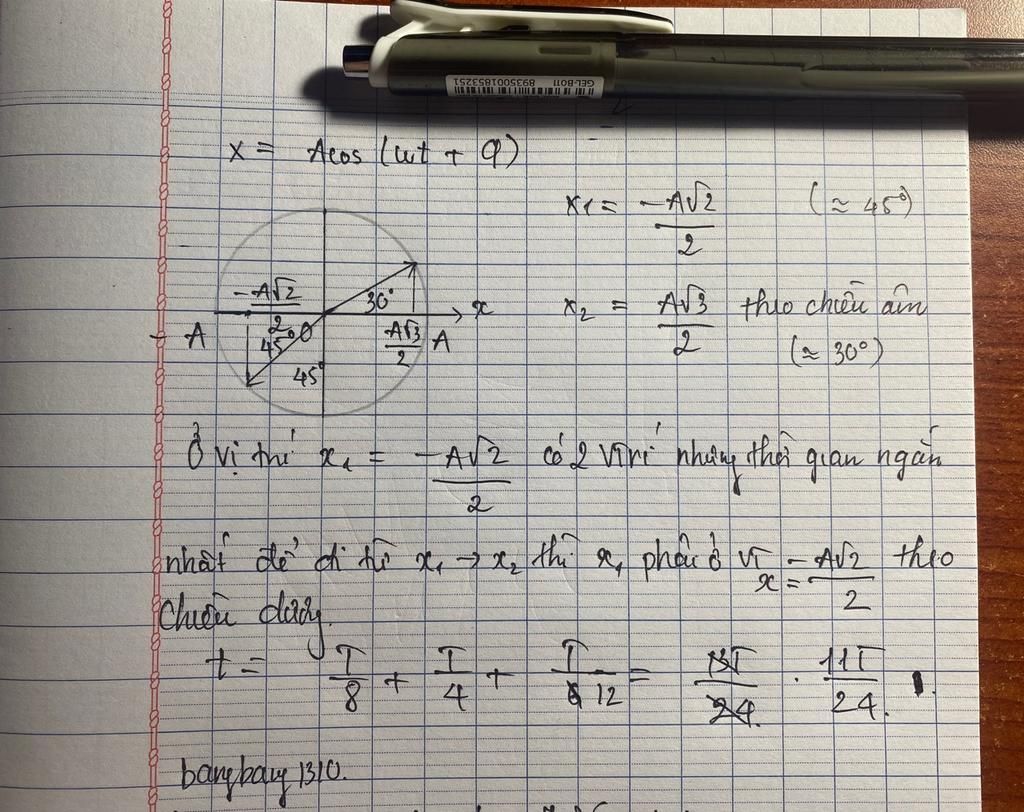 GEL-B011 8935001853251
x = Acos (ωt + φ)
x1 = -A√2/2 (≈ 45°)
x2 = A√3/2 theo chiều âm
(≈ 30°)
-A√2/2
30°
x
-A
45°
O
A√3/2
A
45°
Ở vị trí x1 = -A√2/2 có 2 vị trí nhưng thời gian ngắn
nhất để đi từ x1 → x2 thì x1 phải ở vị x = -A√2/2 theo
chiều dương.
t = T/8 + T/4 + T/12 = 13T/24 . 11T/24
bangbang1310.